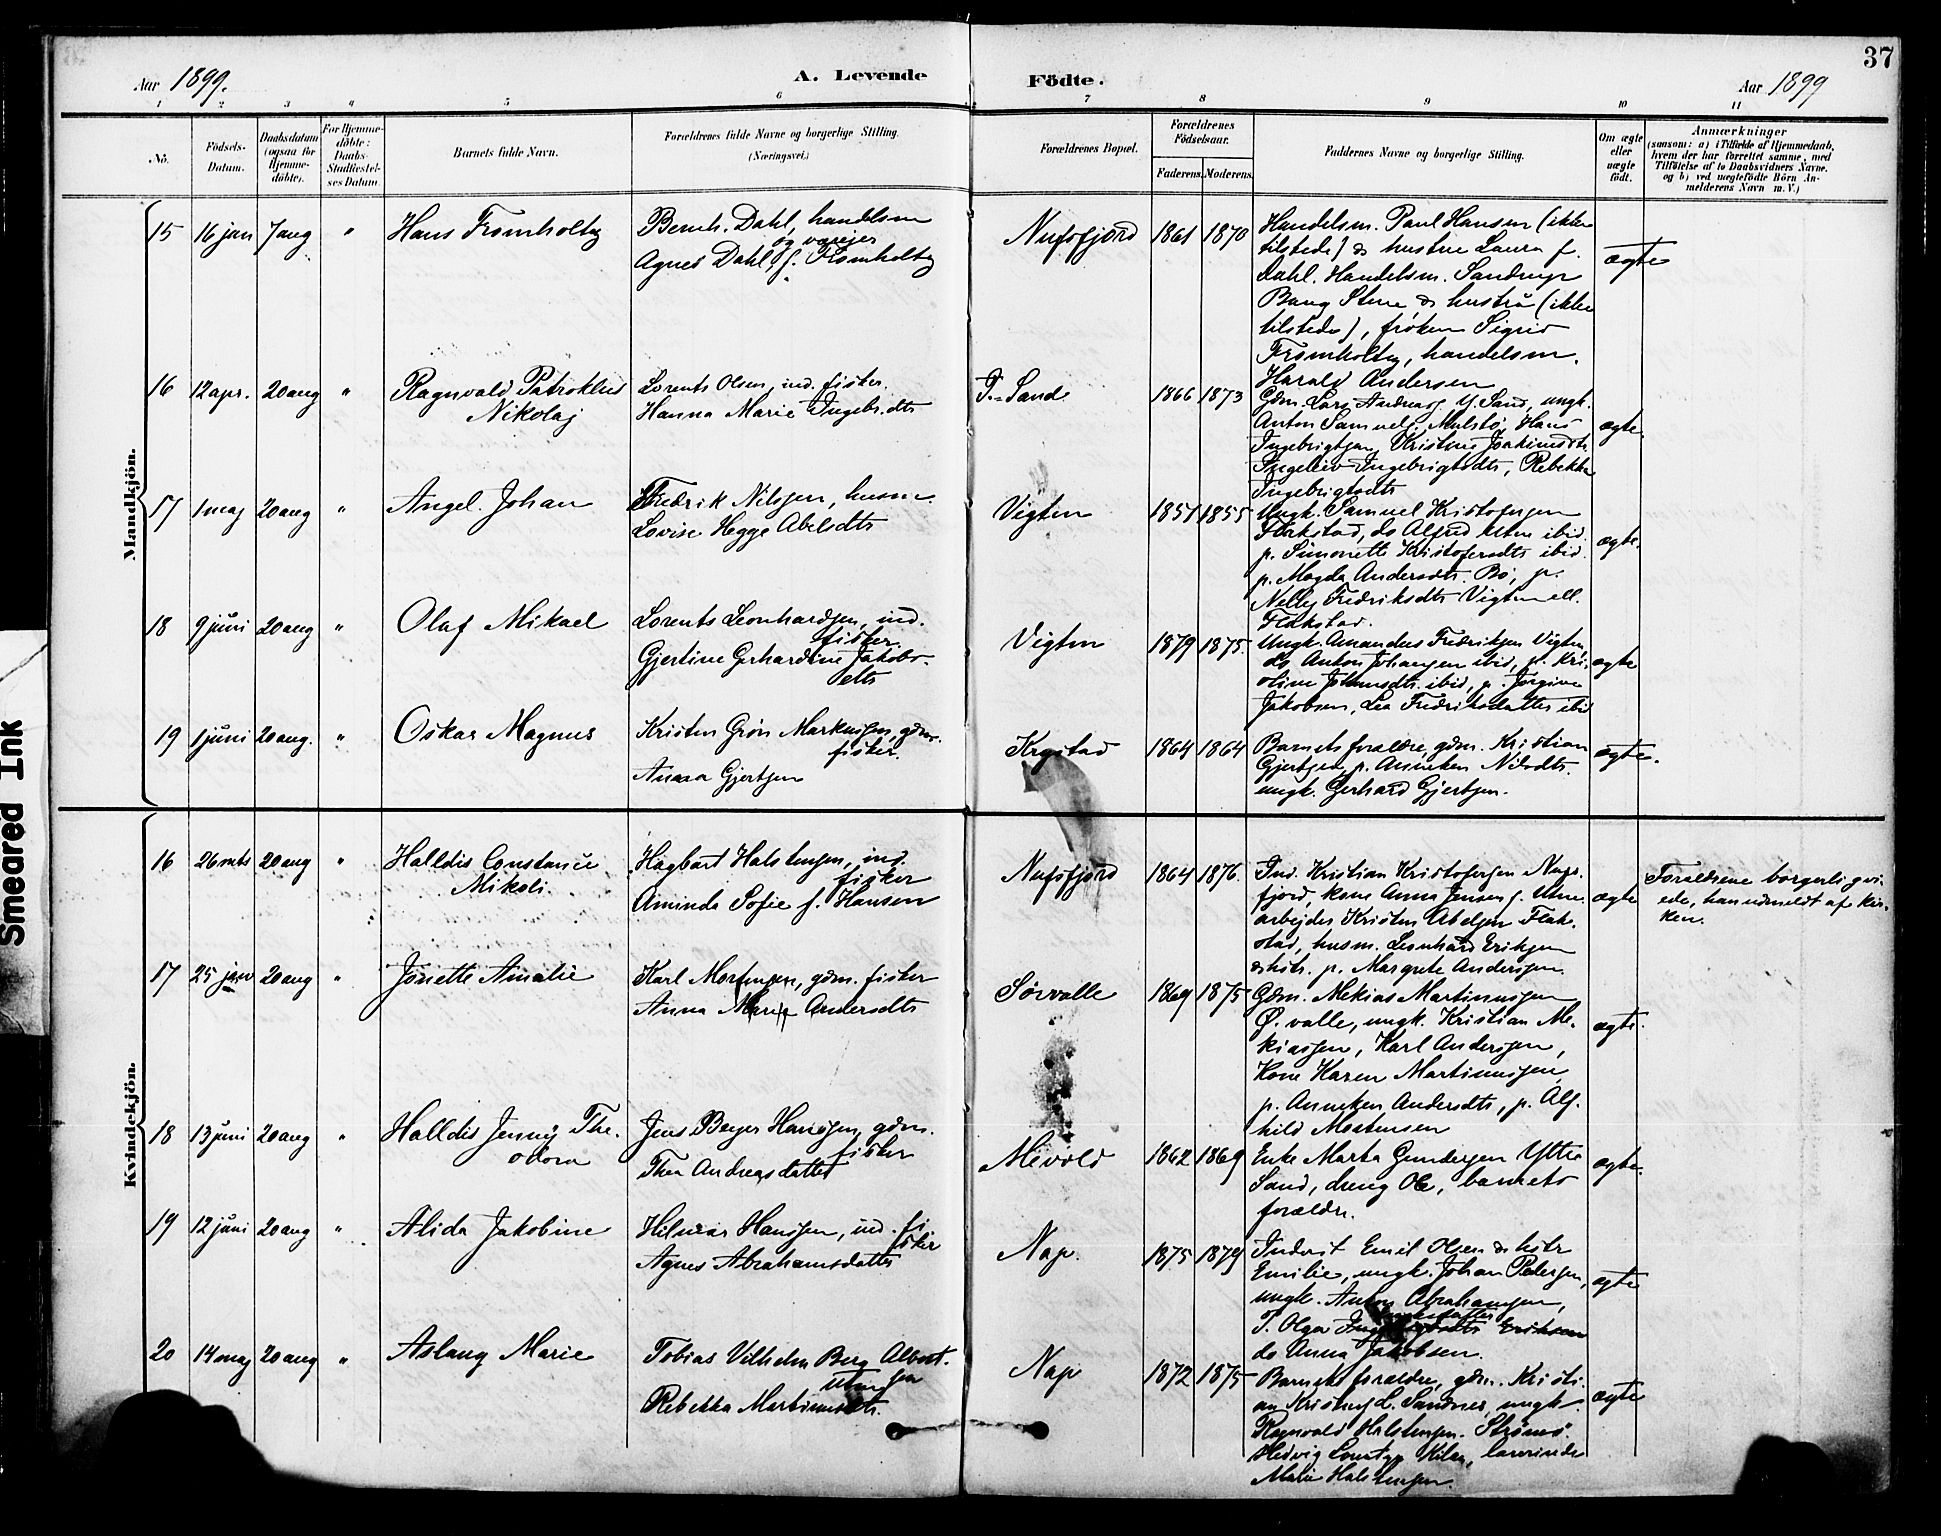 37
Aar 1899.
A. Levende
Födte.
Aar 1899
1 2 3 4 5 6 7 8 9 10 11
No.
Födsels-
Datum.
Daabsdatum
(ogsaa for
Hjemme-
döbte).
For Hjemme-
döbte:
Daabs-
Stadfæstel-
ses Datum.
Barnets fulde Navn.
Forældrenes fulde Navne og borgerlige Stilling.
(Næringsvei.)
Forældrenes Bopæl.
Forældrenes
Födselsaar.
Faderens. Moderens.
Faddernes Navne og borgerlige Stilling.
Om ægte
eller
uægte
født.
Anmærkninger
(saasom: a) i Tilfælde af Hjemmedaab,
hvem der har forrettet samme, med
Tilföielse af to Daabsvidners Navne,
og b) ved uægtefödte Börn An-
melderens Navn m. V.)
Mandkjön.
15 16 jan 7 aug " Hans Fromholtz
Bernh. Dahl, handelsm
og væejer
Agnes Dahl, f. Fromholtz
Nufsfjord 1861 1870
Handelsm. Paul Hansen (ikke
tilstede) & hustru Laura f.
Dahl. Handelsm. Sandrup
Bang Stene & hustru (ikke
tilstede), frøken Sigrid
Fromholtz, handelsm.
Harald Andersen
ægte
16 12 apr. 20 aug " Ragnvald Patroklus
Nikolaj
Lorents Olsen, ind. fisker.
Hanna Marie Ingebr.dts
I. Sand 1866 1873
Gdm. Lars Andreas. Y. Sand, ungk.
Anton Samuels. Mulstø, Hans
Ingebrigtsen, Kristine Joakimsdtr.
Ingeleiv Ingebrigtsdts, Rebekka
Ingebrigtsdts
ægte.
17 1 maj 20 aug " Angel. Johan
Fredrik Nilssen, husm.
Lovise Hegge Abelsdts
Vigten 1851 1855
Ungk. Samuel Kristofersen
Flakstad, do Alfred Utne ibid.
p. Simonette Kristofersdts ibid.
p. Magda Andersdts. Bø, p.
Nelly Fredriksdts Vigten ell.
Flakstad.
ægte.
18 9 juni 20 aug " Olaf Mikael
Lorents Leonhardsen, ind.
fisker.
Gjertine Gerhardine Jakobs-
dts
Vigten 1879 1875.
Ungk. Amandus Fredriksen Vigten,
do Anton Johansen ibid, p. Kri-
stine Johansdts. ibid, p. Jørgine
Jakobsen, Lea Fredriksdatter ibid
ægte
19 1 juni 20 aug. " Oskar Magnus
Kristen Grøn Markussen, gdm.
fisker.
Anna Gjertsen
Krystad 1864 1864
Barnets forældre, gdm. Kristian
Gjertsen, p. Anneken Nilsdts.
ungk. Gerhard Gjertsen.
ægte.
Kvindekjön.
16 26 mts 20 aug " Halldis Constance
Mikoli
Hagbart Halstensen, ind.
fisker
Aminda Sofie f. Hansen
Nufsfjord 1864 1876.
Ind. Kristian Kristofersen Naps-
fjord, kone Anna Jensen f. Utne
arbejder Kristen Abelsen Flak-
stad, husm. Leonhard Eriksen
& hstr. p. Margrete Anderssen.
ægte
Forældrene borgerlig vi-
ede, han udmeldt af kir-
ken.
17 25 jan 20 aug " Jonette Amalie
Karl Mortensen, gdm. fisker
Anna Maria Andersdts
Sørvalle 1869 1875
Gdm. Mekias Martinussen
Ø. valle, ungk. Kristian Me-
kiassen, Karl Anderssen,
Kone Karen Martinussen,
p. Anneken Andersdts, p. Alf-
hild Mortensen
ægte.
18 13 juni 20 aug " Halldis Jenny The-
odora
Jens Beyer Hanssen, gdm.
fisker
Thea Andreasdatter
Mevold 1862 1869
Enke Marta Gundersen Ytter
Sand, dreng Ole, barnets
forældre.
ægte.
19 12 juni 20 aug " Alida Jakobine
Hilmar Hanssen, ind. fi-
sker
Agnes Abrahamsdatter
Nap. 1875 1879
Inderst Emil Olsen & hstr
Emilie, ungk. Johan Pedersen,
ungk. Anton Abrahamsen,
T. Olga Eriksen
do Anna Jakobsen.
ægte
20 14 maj 20 aug " Aslaug Marie
Tobias Vilhelm Berg Albert-
sen
Rebekka Martinusdts.
Nap 1872 1875
Barnets forældre, gdm. Kristi-
an Kristens. L. Sandnes, ungk.
Ragnvald Halstensen. Strømø.
Hedvig Kilan, lærerinde
Malie Halstensen.
ægte
Smeared Ink